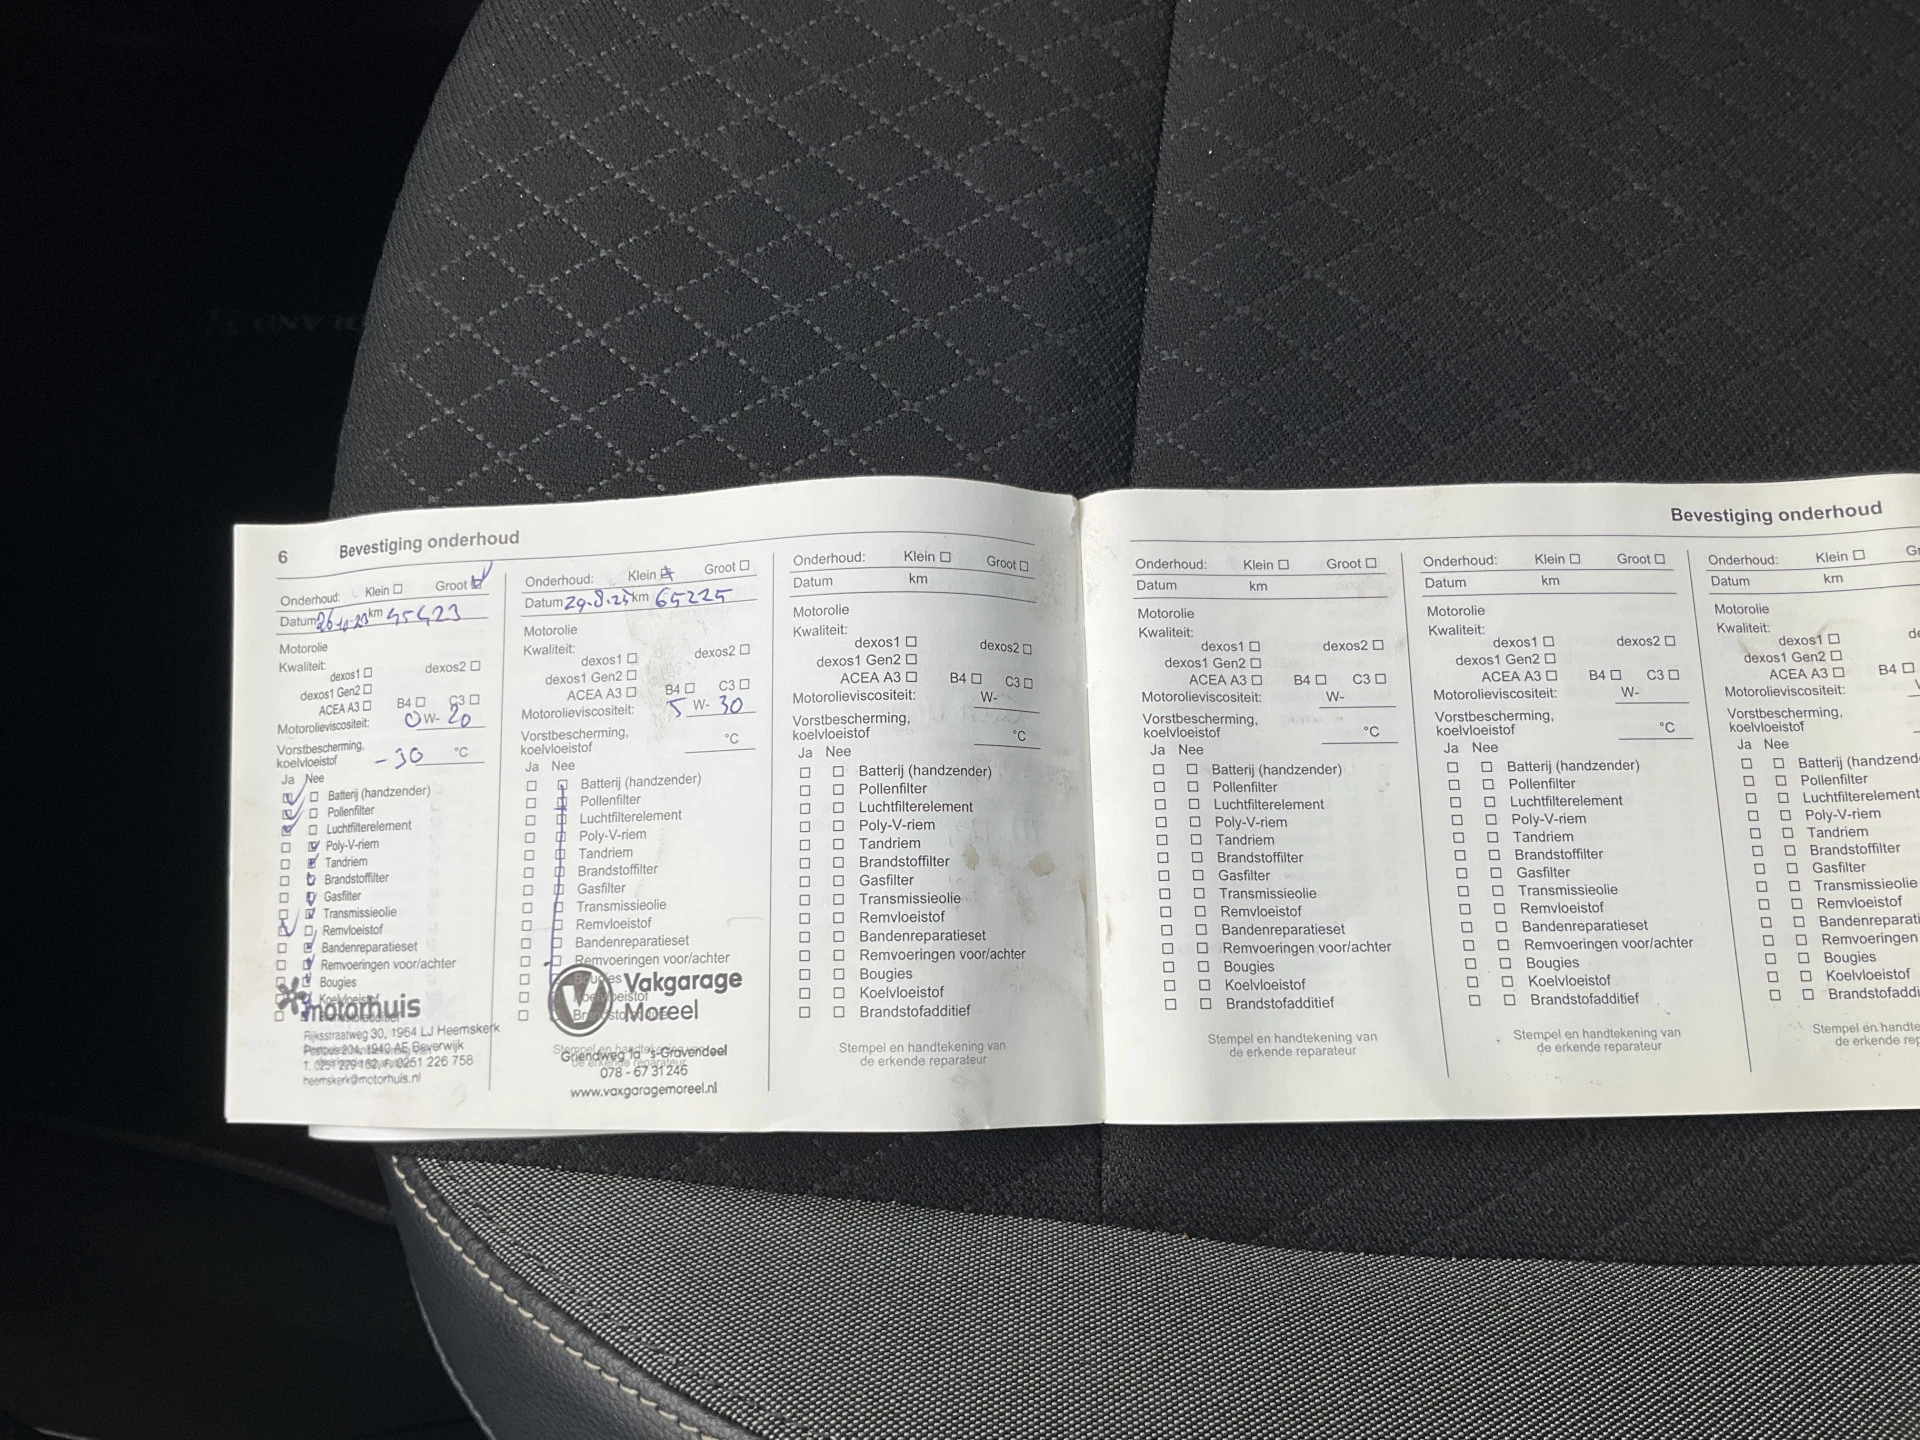 6 Bevestiging onderhoud
Onderhoud: Klein Groot
Datum 26-10-23 km 45423
Motorolie
Kwaliteit:
dexos1 dexos2
dexos1 Gen2
ACEA A3 B4 C3
Motorolieviscositeit: 0 W- 20
Vorstbescherming,
koelvloeistof -30 °C
Ja Nee
Batterij (handzender)
Pollenfilter
Luchtfilterelement
Poly-V-riem
Tandriem
Brandstoffilter
Gasfilter
Transmissieolie
Remvloeistof
Bandenreparatieset
Remvoeringen voor/achter
Bougies
Koelvloeistof
Brandstofadditief
motorhuis
Rijksstraatweg 30, 1964 LJ Heemskerk
Postbus 204, 1940 AE Beverwijk
T. 0251 229 162, F. 0251 226 758
heemskerk@motorhuis.nl
Onderhoud: Klein Groot
Datum 29-8-25 km 65225
Motorolie
Kwaliteit:
dexos1 dexos2
dexos1 Gen2
ACEA A3 B4 C3
Motorolieviscositeit: 5 W- 30
Vorstbescherming,
koelvloeistof °C
Ja Nee
Batterij (handzender)
Pollenfilter
Luchtfilterelement
Poly-V-riem
Tandriem
Brandstoffilter
Gasfilter
Transmissieolie
Remvloeistof
Bandenreparatieset
Remvoeringen voor/achter
Bougies
Koelvloeistof
Brandstofadditief
Vakgarage
Moreel
Stempel en handtekening van
de erkende reparateur
Griendweg 1a 's-Gravendeel
078 - 67 31 246
www.vakgaragemoreel.nl
Onderhoud: Klein Groot
Datum km
Motorolie
Kwaliteit:
dexos1 dexos2
dexos1 Gen2
ACEA A3 B4 C3
Motorolieviscositeit: W-
Vorstbescherming,
koelvloeistof °C
Ja Nee
Batterij (handzender)
Pollenfilter
Luchtfilterelement
Poly-V-riem
Tandriem
Brandstoffilter
Gasfilter
Transmissieolie
Remvloeistof
Bandenreparatieset
Remvoeringen voor/achter
Bougies
Koelvloeistof
Brandstofadditief
Stempel en handtekening van
de erkende reparateur
Bevestiging onderhoud
Onderhoud: Klein Groot
Datum km
Motorolie
Kwaliteit:
dexos1 dexos2
dexos1 Gen2
ACEA A3 B4 C3
Motorolieviscositeit: W-
Vorstbescherming,
koelvloeistof °C
Ja Nee
Batterij (handzender)
Pollenfilter
Luchtfilterelement
Poly-V-riem
Tandriem
Brandstoffilter
Gasfilter
Transmissieolie
Remvloeistof
Bandenreparatieset
Remvoeringen voor/achter
Bougies
Koelvloeistof
Brandstofadditief
Stempel en handtekening van
de erkende reparateur
Onderhoud: Klein Groot
Datum km
Motorolie
Kwaliteit:
dexos1 dexos2
dexos1 Gen2
ACEA A3 B4 C3
Motorolieviscositeit: W-
Vorstbescherming,
koelvloeistof °C
Ja Nee
Batterij (handzender)
Pollenfilter
Luchtfilterelement
Poly-V-riem
Tandriem
Brandstoffilter
Gasfilter
Transmissieolie
Remvloeistof
Bandenreparatieset
Remvoeringen voor/achter
Bougies
Koelvloeistof
Brandstofadditief
Stempel en handtekening van
de erkende reparateur
Onderhoud: Klein G
Datum km
Motorolie
Kwaliteit:
dexos1 de
dexos1 Gen2
ACEA A3 B4
Motorolieviscositeit:
Vorstbescherming,
koelvloeistof
Ja Nee
Batterij (handzend
Pollenfilter
Luchtfilterelement
Poly-V-riem
Tandriem
Brandstoffilter
Gasfilter
Transmissieolie
Remvloeistof
Bandenreparati
Remvoeringen
Bougies
Koelvloeistof
Brandstofaddi
Stempel en handte
de erkende rep